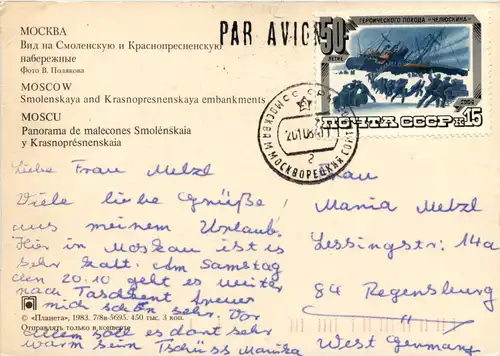 МОСКВА
Вид на Смоленскую и Краснопресненскую
набережные
Фото В. Полякова
MOSCOW
Smolenskaya and Krasnopresnenskaya embankments
MOSCU
Panorama de malecones Smolénskaia
y Krasnoprésnenskaia
PAR AVION
50
ЛЕТИЕ
ГЕРОИЧЕСКОГО ПОХОДА «ЧЕЛЮСКИНА»
1984
ПОЧТА СССР К 15
МОСКВА
МОСКВОРЕЦКИЙ
Liebe Frau Metzl
Viele liebe Grüße
aus meinem Urlaub.
Hier in Moskau ist es
sehr kalt. Am Samstag
den 20.10 geht es weiter
nach Taschkent freue
mich schon sehr. Vor
allem soll es dort sehr
warm sein Tschüss Marika
Frau
Maria Metzl
Lessingstr. 14a
84 Regensburg
West Germany
© «Планета», 1983. 7/8в-5695. 450 тыс. 3 коп.
Отправлять только в конверте